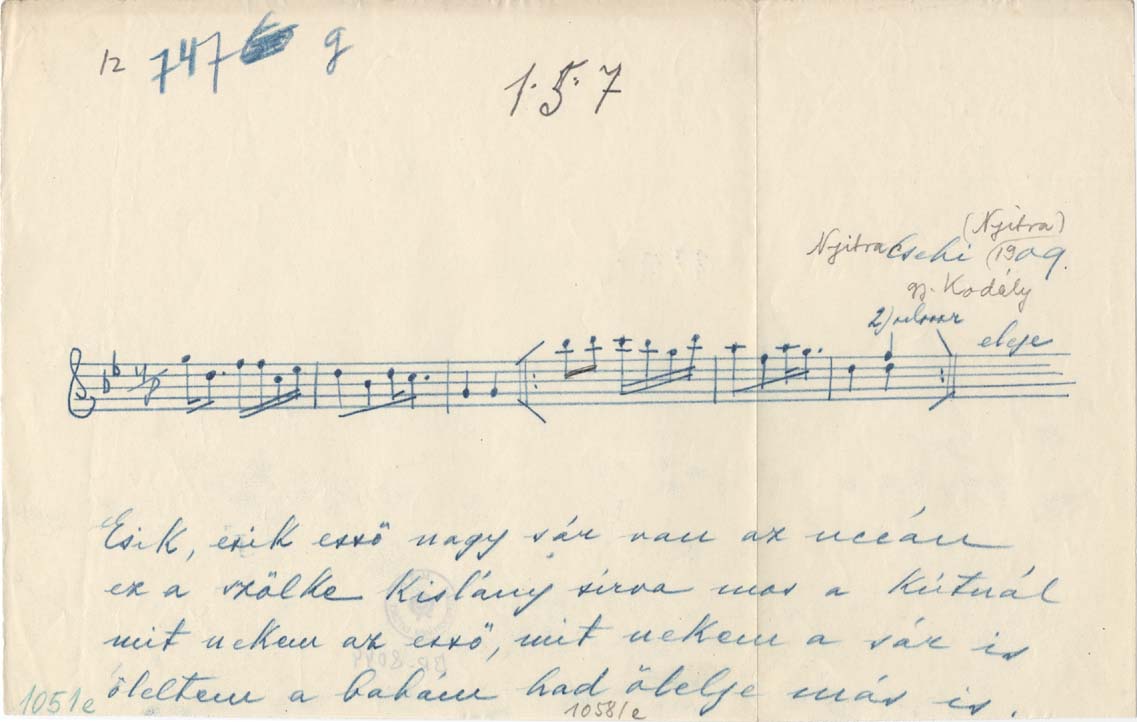 12 747 g
1.5.7
(Nyitra)
Nyitra Csehi (1909.
gy. Kodály
2)
eleje
Esik, esik esső nagy sár van az uccán
ez a szőlke Kislány sírva mos a Kútnál
mit nekem az esső, mit nekem a sár is
öleltem a babám had ölelje más is.
1051e
1058/e
BR-8044